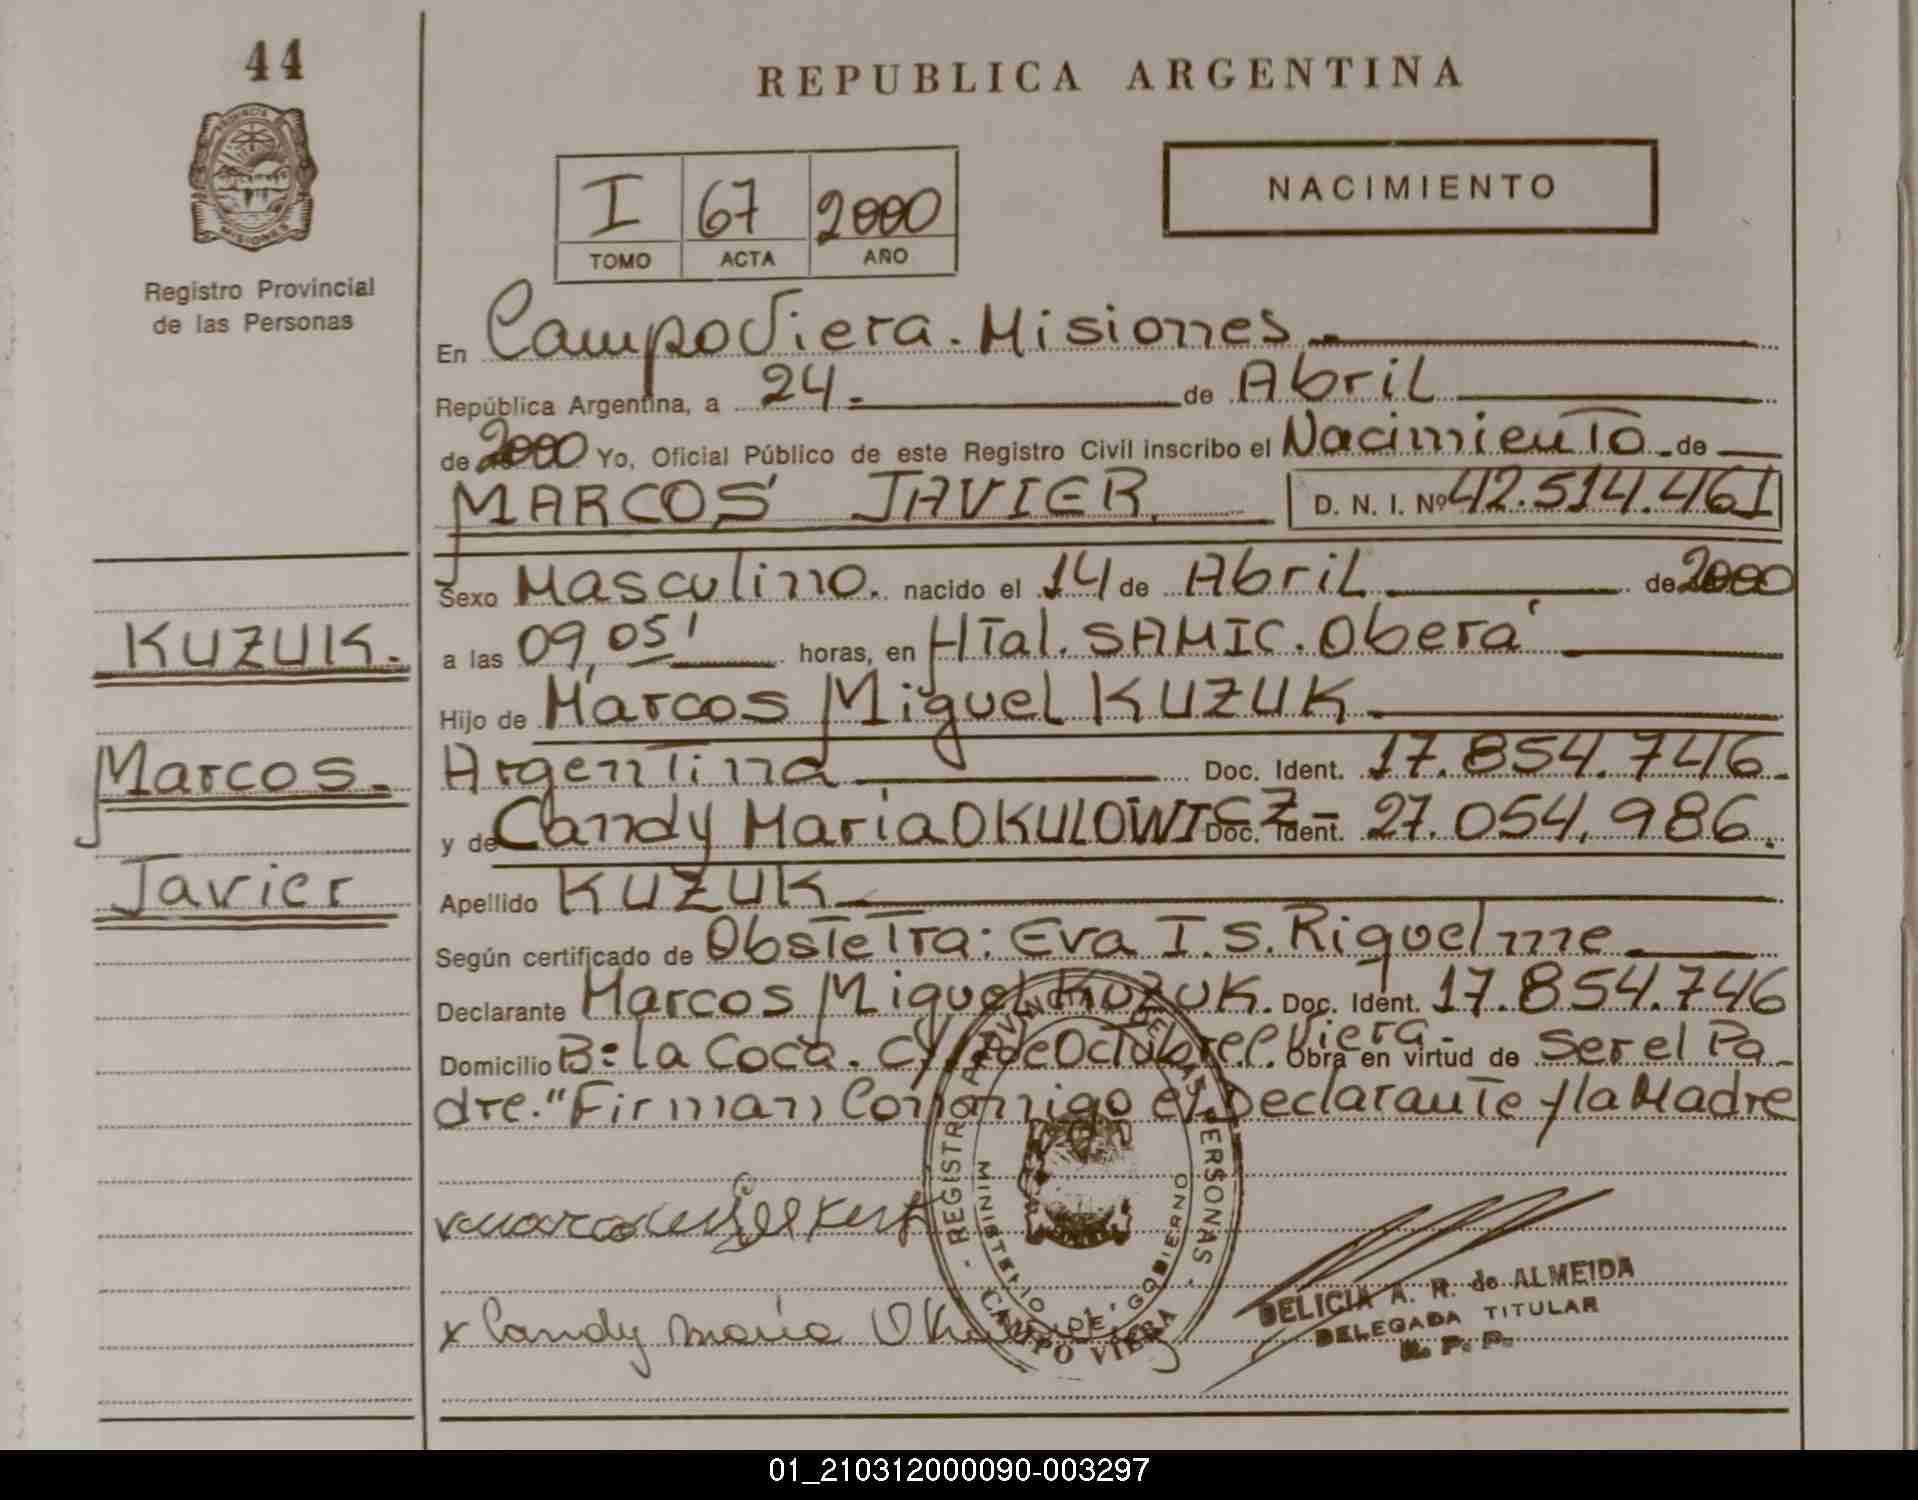 44
PROVINCIA
MISIONES
Registro Provincial
de las Personas
REPUBLICA ARGENTINA
I 67 2000
TOMO ACTA AÑO
NACIMIENTO
En Campo Viera. Misiones.
República Argentina, a 24. de Abril
de 2000 Yo, Oficial Público de este Registro Civil inscribo el Nacimiento de
MARCOS JAVIER. D. N. I. Nº 42.514.461
Sexo Masculino. nacido el 14 de Abril de 2000
a las 09,05' horas, en HTal. SAMIC. Oberá
Hijo de Marcos Miguel KUZUK
Argentina Doc. Ident. 17.854.746.
y de Candy María OKULOWICZ - Doc. Ident. 27.054.986.
Apellido KUZUK
Según certificado de Obstetra: Eva I. S. Riquelme
Declarante Marcos Miguel KUZUK. Doc. Ident. 17.854.746
Domicilio B: la Coca. de Octubre C. Viera. Obra en virtud de Ser el Pa-
dre." Firman Conmigo el Declarante y la Madre
KUZUK.
Marcos.
Javier
x Candy maría
REGISTRO PROVINCIAL DE LAS PERSONAS
MINISTERIO DE GOBIERNO
CAMPO VIERA
DELICIA A. R. de ALMEIDA
DELEGADA TITULAR
R. P. P.
01_210312000090-003297